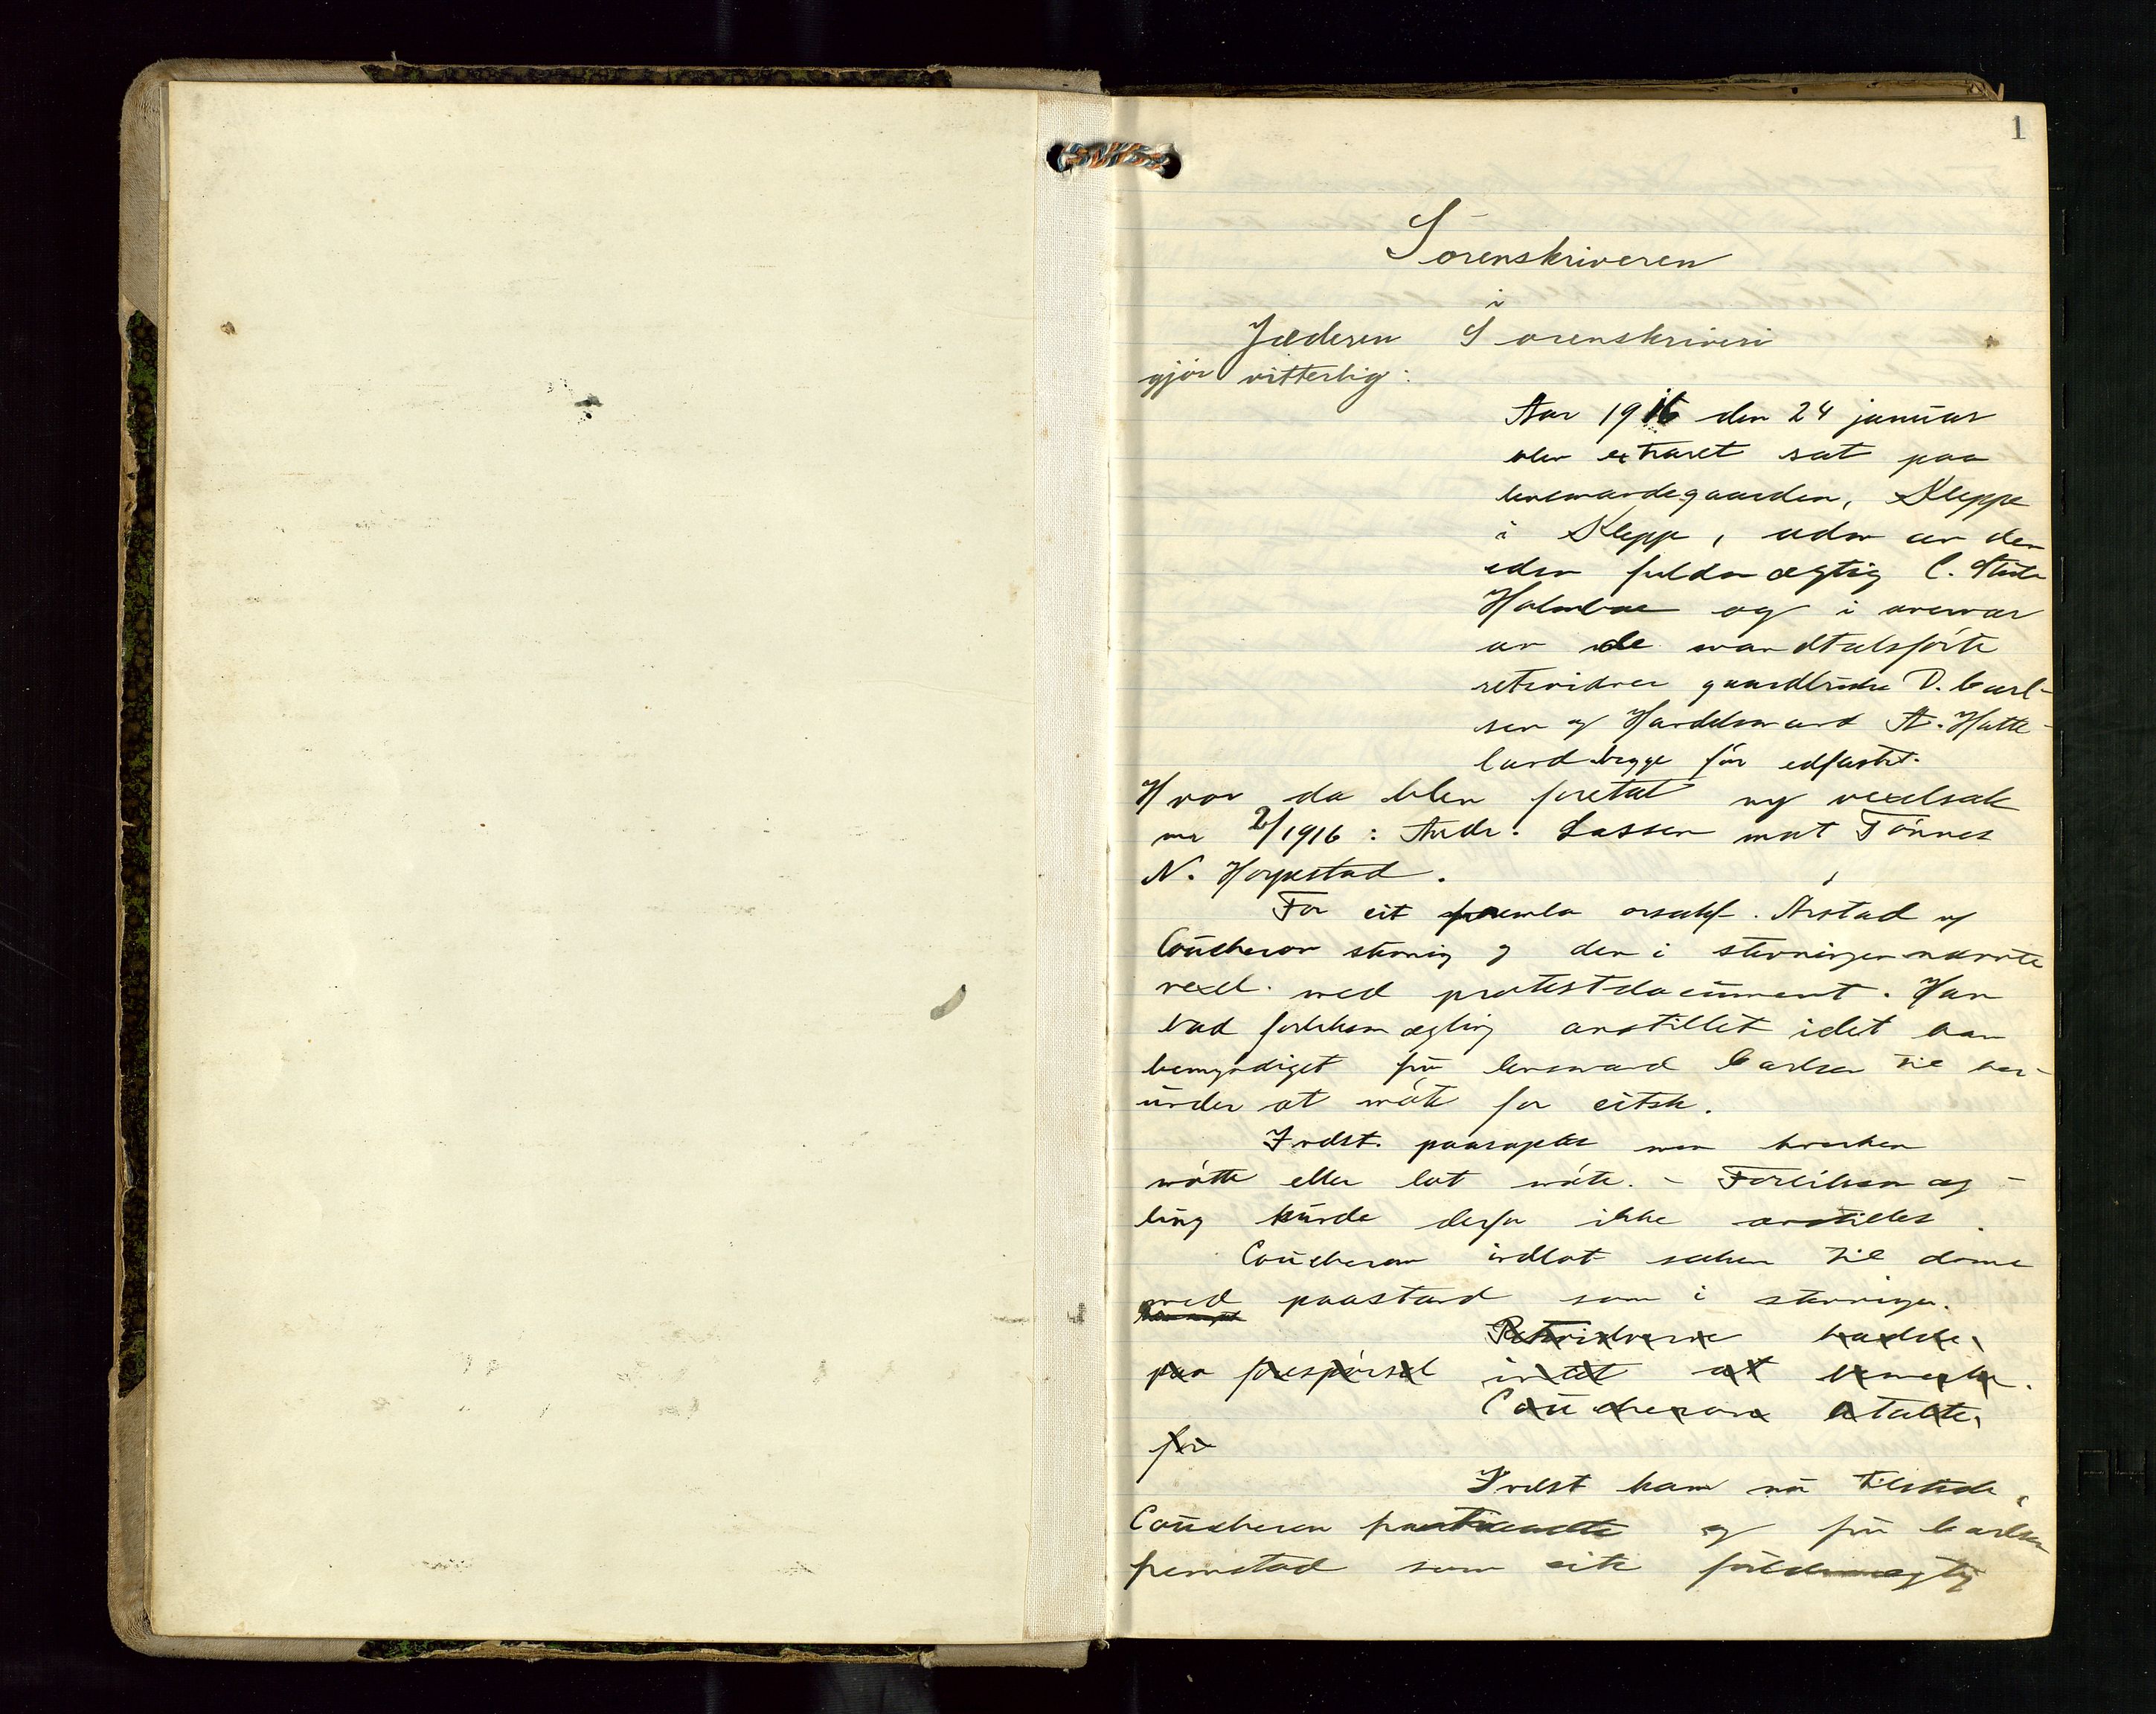 1
Sorenskriveren
i
Jæderen Sorenskriveri
gjør vitterlig:
Aar 1916 den 24 januar
blev extraret sat paa
lensmandsgaarden, Kleppe
i Klepp, under av den
edsv fuldmægtig C.
Holmboe og i overvær
av de mandtalsførte
retsvidner gaardbruker D. Carl-
sen og Handelsmand A. Hatte-
land begge før edfæstet.
Hvor da blev foretat ny vexelsak
nr 2/1916: Andr. Lassen mot Tönnes
N. Haypestad.
For cit fremla orsakf. Årstad og
Coucheron stevning og den i stevningen nævnte
vexel med protestdocument. Han
bad forliksmægling anstillet idet han
bemyndiget frå lensmand Carlsen til her-
under at møte for citst.
Indst. paaroptes men hverken
møtte eller lot møte. - Forliksmæg-
ling kunde derfor ikke anstilles.
Coucheron indlot saken til doms
med paastand som i stevningen.
Retsvidnerne hadde
paa forespørsel intet at bemerke.
Coucheron uttalte,
for
Indst kam nu tilstede,
Coucheron og frå Carlsen
fremstod som cits fuldmægtig